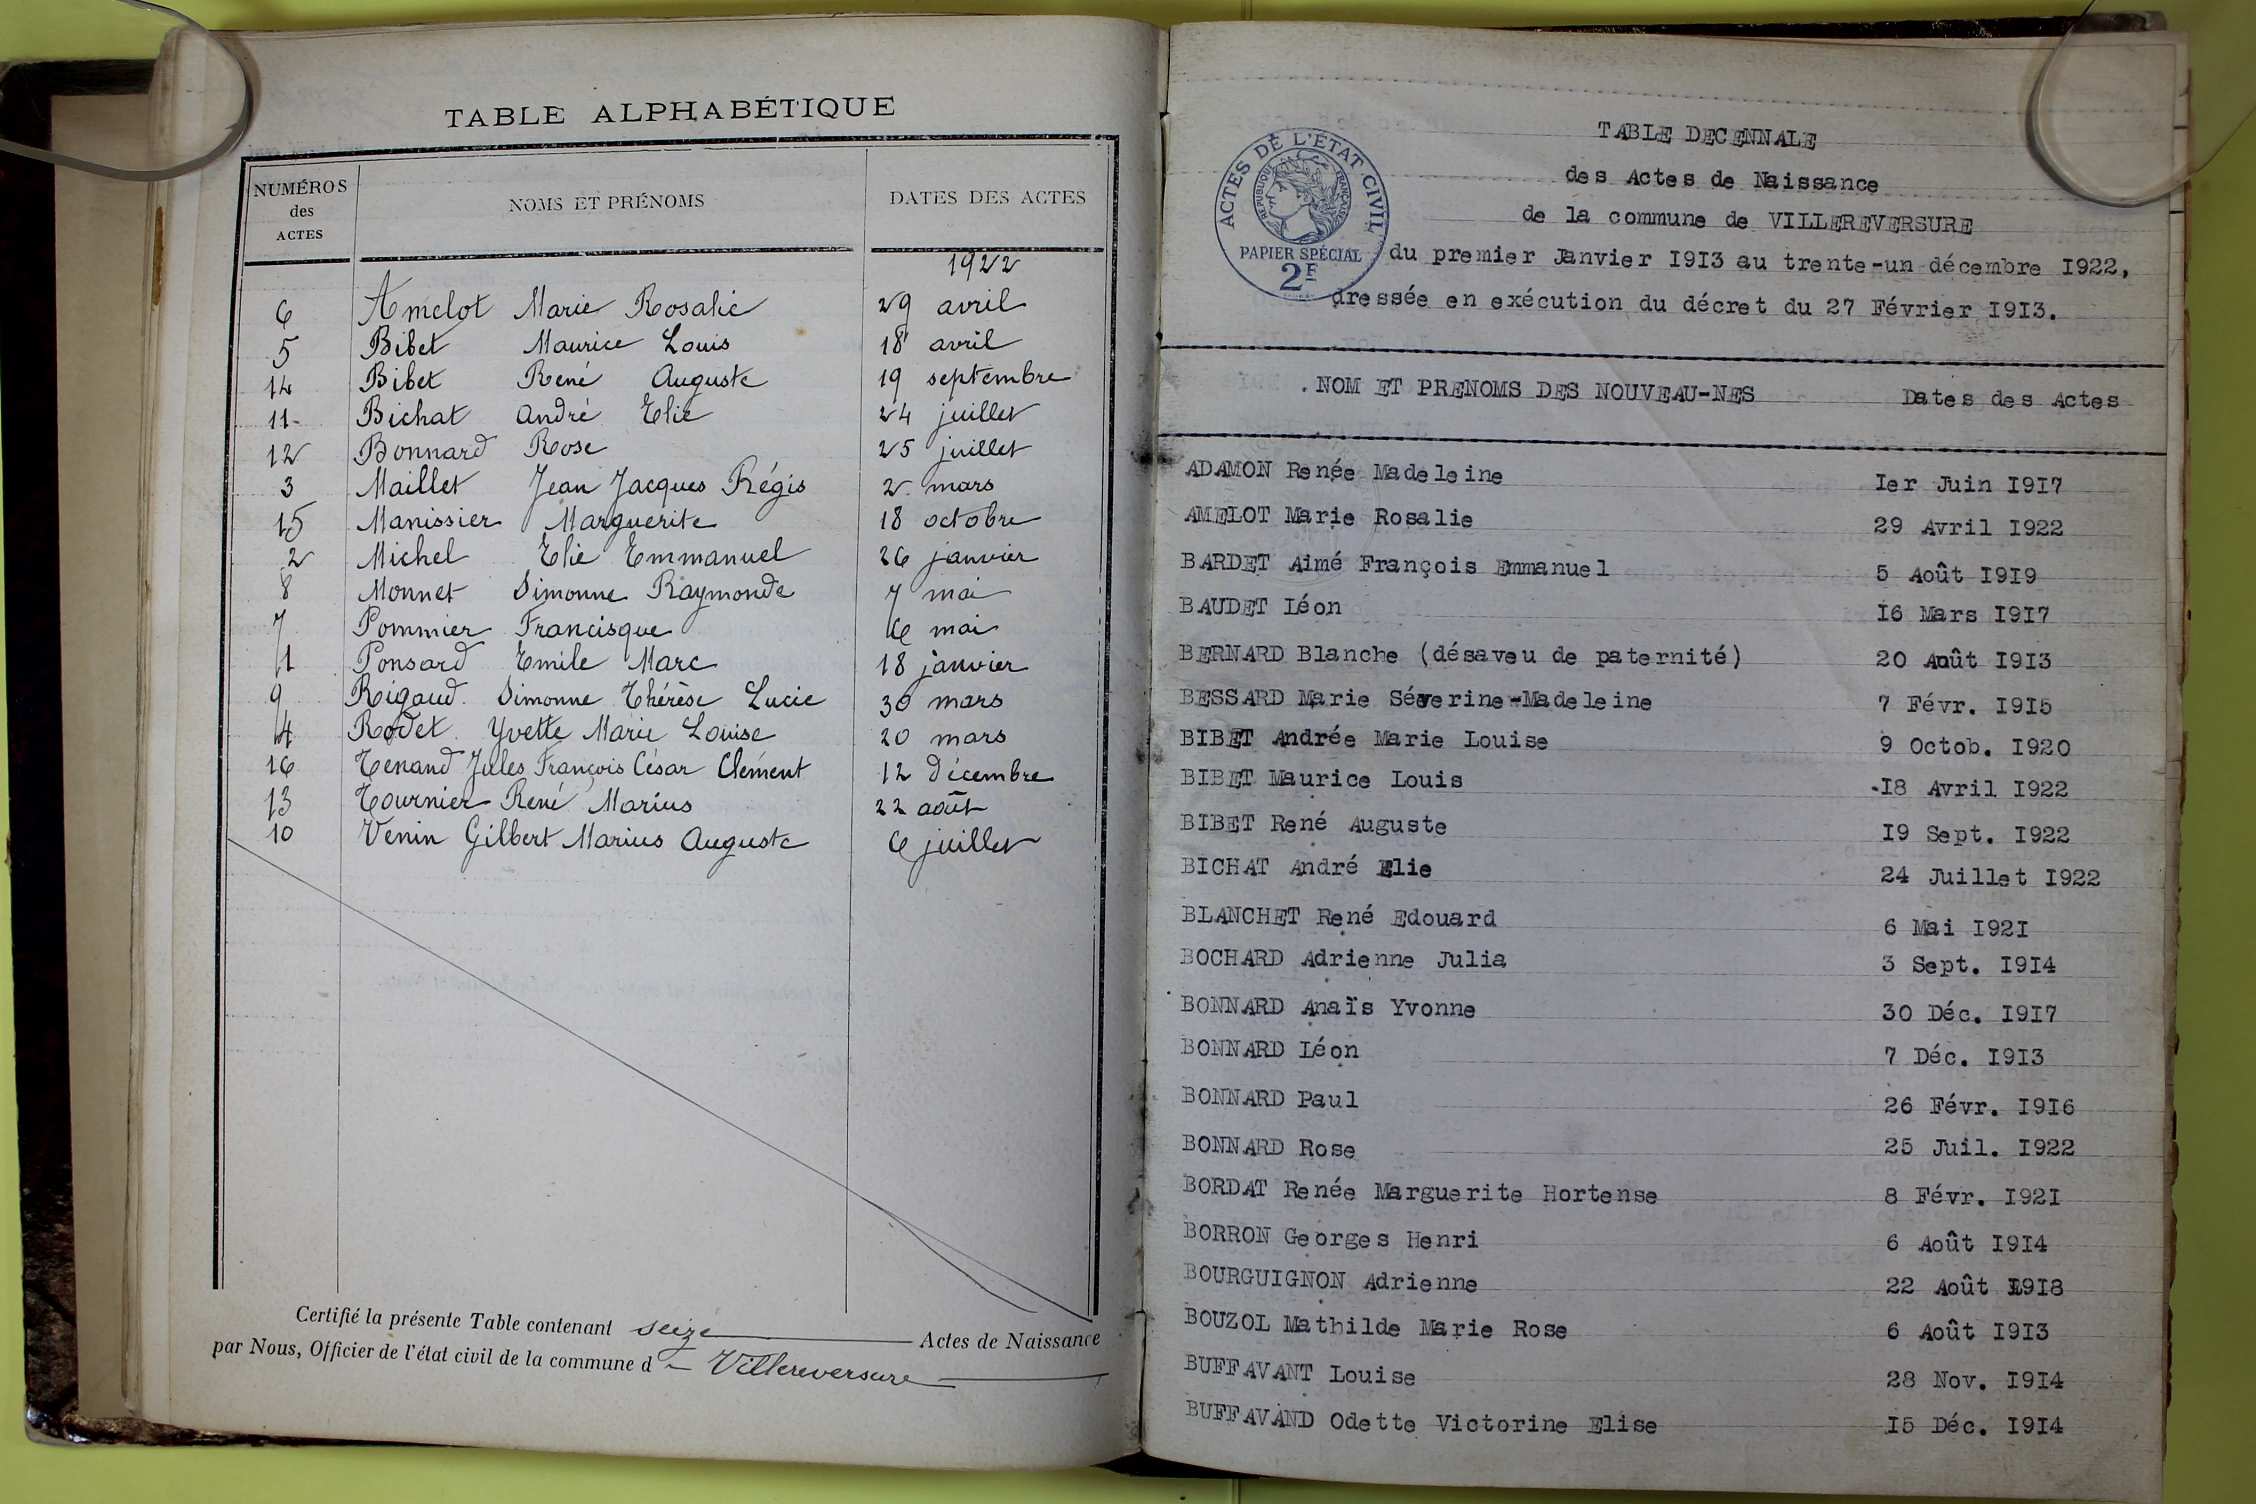 TABLE ALPHABÉTIQUE
NUMÉROS des ACTES NOMS ET PRÉNOMS DATES DES ACTES
1922
6 Amelot Marie Rosalie 29 avril
5 Bibet Maurice Louis 18 avril
14 Bibet René Auguste 19 septembre
11 Bichat André Elie 24 juillet
12 Bonnard Rose 25 juillet
3 Maillet Jean Jacques Régis 2 mars
15 Manissier Marguerite 18 octobre
2 Michel Elie Emmanuel 26 janvier
8 Monnet Simonne Raymonde 7 mai
7 Pommier Francisque 6 mai
1 Ponsard Emile Marc 18 janvier
9 Rigaud Simonne Thérèse Lucie 30 mars
4 Rodet Yvette Marie Louise 20 mars
16 Tenand Jules François César Clément 12 décembre
13 Tournier René Marius 22 août
10 Venin Gilbert Marius Auguste 6 juillet
Certifié la présente Table contenant seize Actes de Naissance
par Nous, Officier de l'état civil de la commune d Villereversure
ACTES DE L'ÉTAT CIVIL
RÉPUBLIQUE FRANÇAISE
PAPIER SPÉCIAL
2F
TABLE DECENNALE
des Actes de Naissance
de la commune de VILLEREVERSURE
du premier Janvier I9I3 au trente-un décembre I922,
dressée en exécution du décret du 27 Février I9I3.
.NOM ET PRENOMS DES NOUVEAU-NES Dates des Actes
ADAMON Renée Madeleine Ier Juin I9I7
AMELOT Marie Rosalie 29 Avril I922
BARDET Aimé François Emmanuel 5 Août I9I9
BAUDET Léon I6 Mars I9I7
BERNARD Blanche (désaveu de paternité) 20 Août I9I3
BESSARD Marie Séverine-Madeleine 7 Févr. I9I5
BIBET Andrée Marie Louise 9 Octob. I920
BIBET Maurice Louis I8 Avril I922
BIBET René Auguste I9 Sept. I922
BICHAT André Elie 24 Juillet I922
BLANCHET René Edouard 6 Mai I92I
BOCHARD Adrienne Julia 3 Sept. I9I4
BONNARD Anaïs Yvonne 30 Déc. I9I7
BONNARD Léon 7 Déc. I9I3
BONNARD Paul 26 Févr. I9I6
BONNARD Rose 25 Juil. I922
BORDAT Renée Marguerite Hortense 8 Févr. I92I
BORRON Georges Henri 6 Août I9I4
BOURGUIGNON Adrienne 22 Août I9I8
BOUZOL Mathilde Marie Rose 6 Août I9I3
BUFFAVANT Louise 28 Nov. I9I4
BUFFAVAND Odette Victorine Elise I5 Déc. I9I4